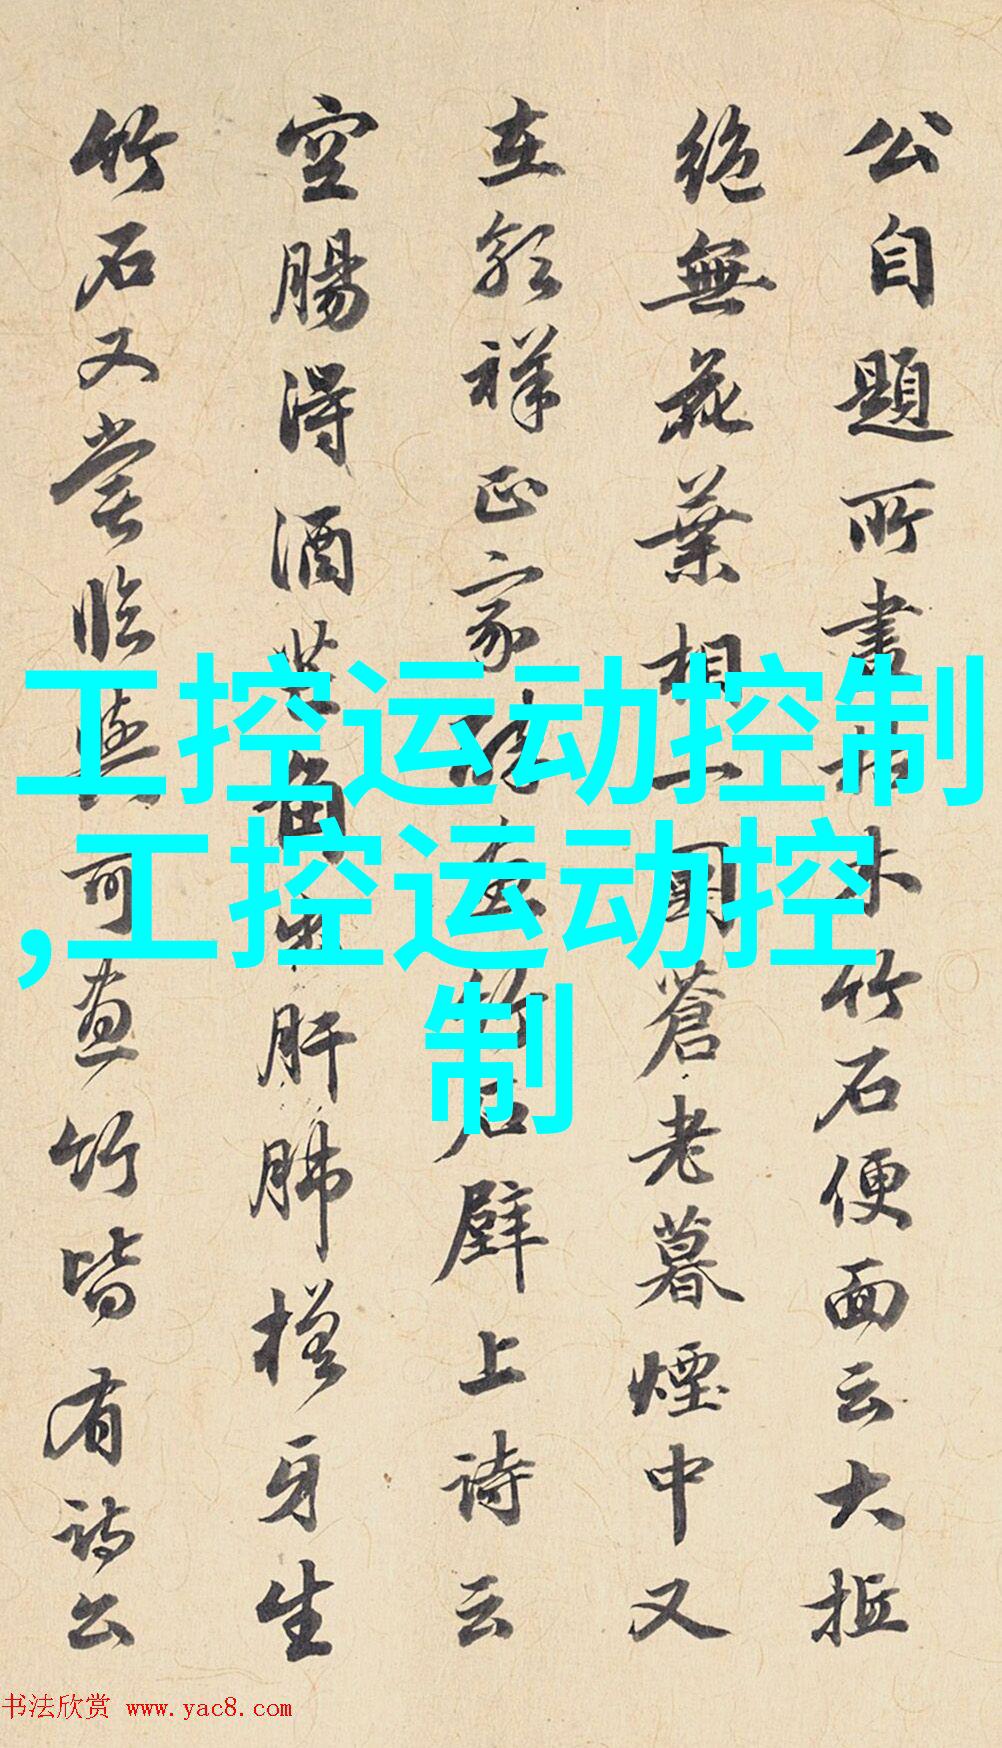 公自題所書枯木竹石便面云大抵
絶無花葉相一團蒼老暮煙中又
在郭祥正家醉畫竹石壁上詩云
空腸得酒芒角出肝肺槎牙生
竹石又嘗臨與可畫竹皆有詩公
工控运动控制
,工控运动控
制
书法欣赏 www.yac8.com